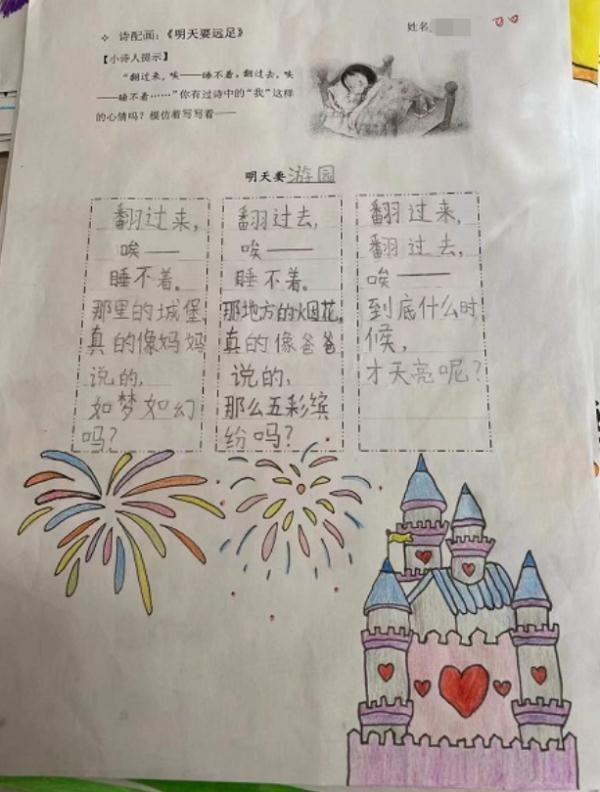 ❖ 诗配画：《明天要远足》
姓名
【小诗人提示】
“翻过来，唉——睡不着；翻过去，唉
——睡不着……”你有过诗中的“我”这样
的心情吗？模仿着写写看——
明天要游园
翻过来，
唉——
睡不着。
那里的城堡，
真的像妈妈
说的，
如梦如幻
吗？
翻过去，
唉——
睡不着。
那地方的烟花，
真的像爸爸
说的，
那么五彩缤
纷吗？
翻过来，
翻过去，
唉——
到底什么时
候，
才天亮呢？